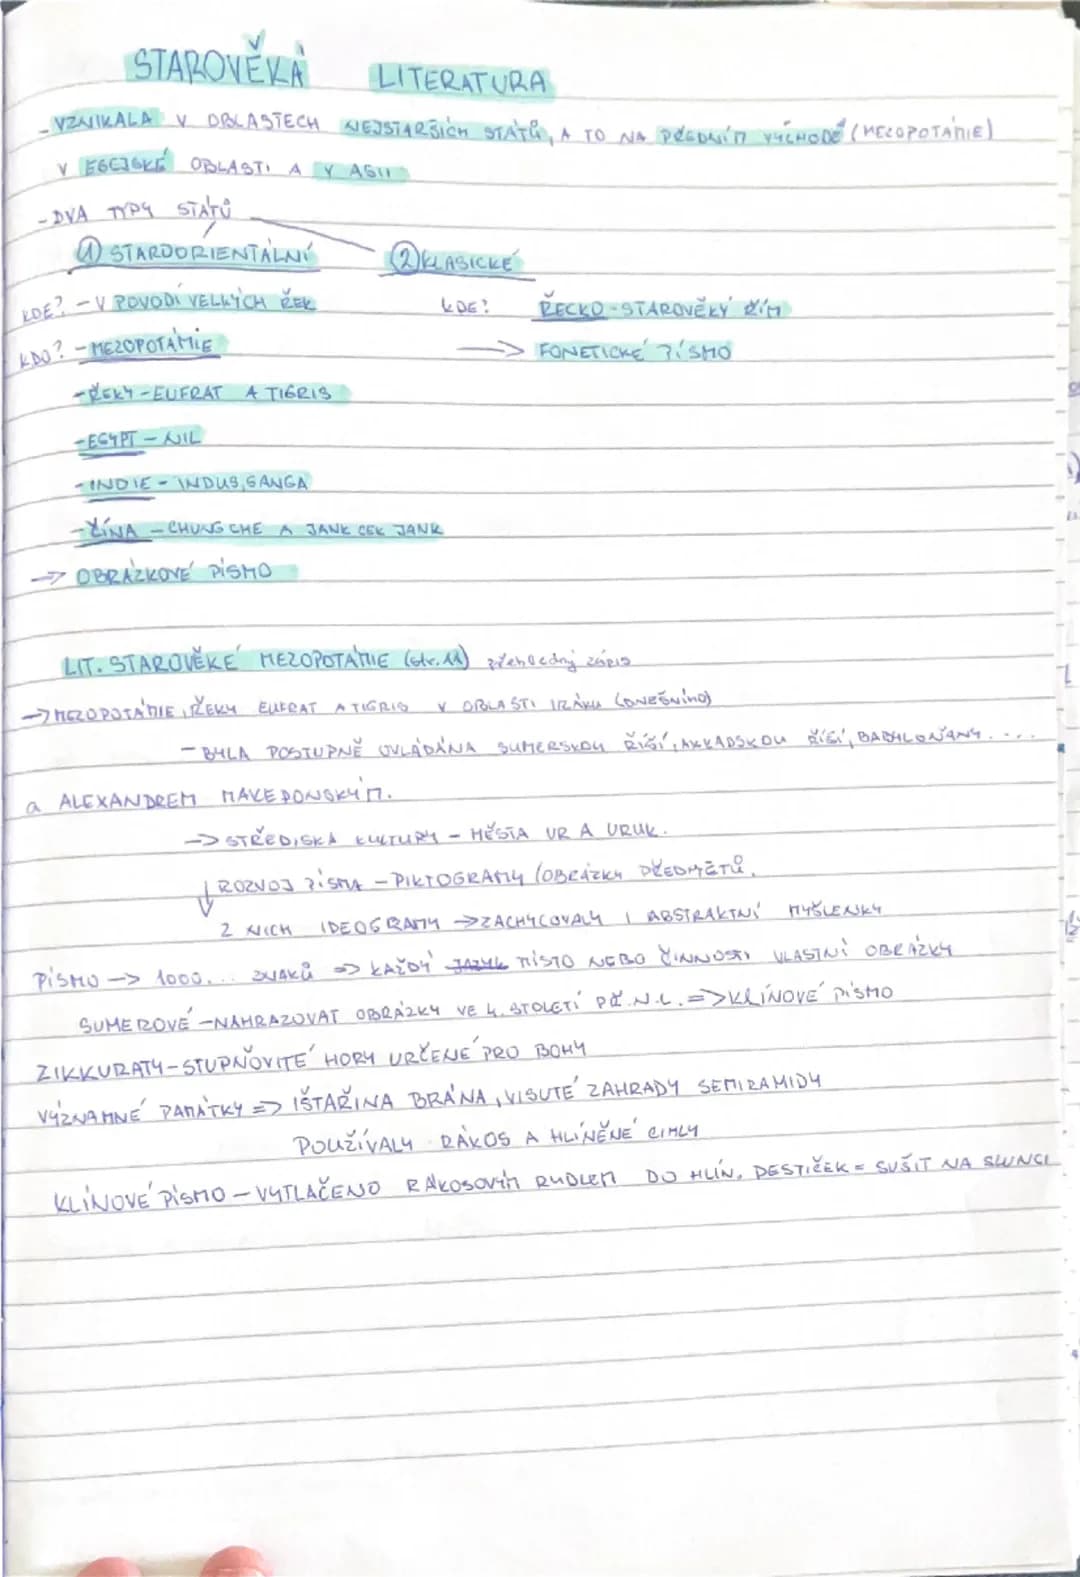 STAROVĚKÁ LITERATURA
- VZNIKALA V OBLASTECH NEJSTARŠÍCH STÁTŮ, A TO NA PŘEDNÍM VÝCHODĚ (MEZOPOTÁMIE)
V EGEJSKÉ OBLASTI A V ASII
- DVA TYPY STÁTŮ
① STAROORIENTÁLNÍ ② KLASICKÉ
KDE? - V POVODÍ VELKÝCH ŘEK KDE? ŘECKO - STAROVĚKÝ ŘÍM
KDO? - MEZOPOTÁMIE → FONETICKÉ PÍSMO
- ŘEKY - EUFRAT A TIGRIS
- EGYPT - NIL
- INDIE - INDUS, GANGA
- ČÍNA - CHUNG CHE A JANK CEK JANK
→ OBRÁZKOVÉ PÍSMO
LIT. STAROVĚKÉ MEZOPOTÁMIE (str. 11) přehledný zápis
→ MEZOPOTÁMIE, ŘEKY EUFRAT A TIGRIS V OBLASTI IRÁKU (DNEŠNÍHO)
- BYLA POSTUPNĚ OVLÁDÁNA SUMERSKOU ŘÍŠÍ, AKKADSKOU ŘÍŠÍ, BABYLOŇANY....
a ALEXANDREM MAKEDONSKÝM.
→ STŘEDISKA KULTURY - MĚSTA UR A URUK.
↓ ROZVOJ PÍSMA - PIKTOGRAMY (OBRÁZKY PŘEDMĚTŮ.
Z NICH IDEOGRAMY → ZACHYCOVALY I ABSTRAKTNÍ MYŠLENKY
PÍSMO → 1000... ZNAKŮ => KAŽDÝ JAZYK MÍSTO NEBO ČINNOSTI VLASTNÍ OBRÁZKY
SUMEROVÉ - NAHRAZOVAT OBRÁZKY VE 4. STOLETÍ PŘ. N. L. => KLÍNOVÉ PÍSMO
ZIKKURATY - STUPŇOVITÉ HORY URČENÉ PRO BOHY
VÝZNAMNÉ PAMÁTKY => IŠTAŘINA BRÁNA, VISUTÉ ZAHRADY SEMIRAMIDY
POUŽÍVALY RÁKOS A HLÍNĚNÉ CIHLY
KLÍNOVÉ PÍSMO - VYTLAČENO RÁKOSOVÝM RYDLEM DO HLÍN. DESTIČEK = SUŠIT NA SLUNCI